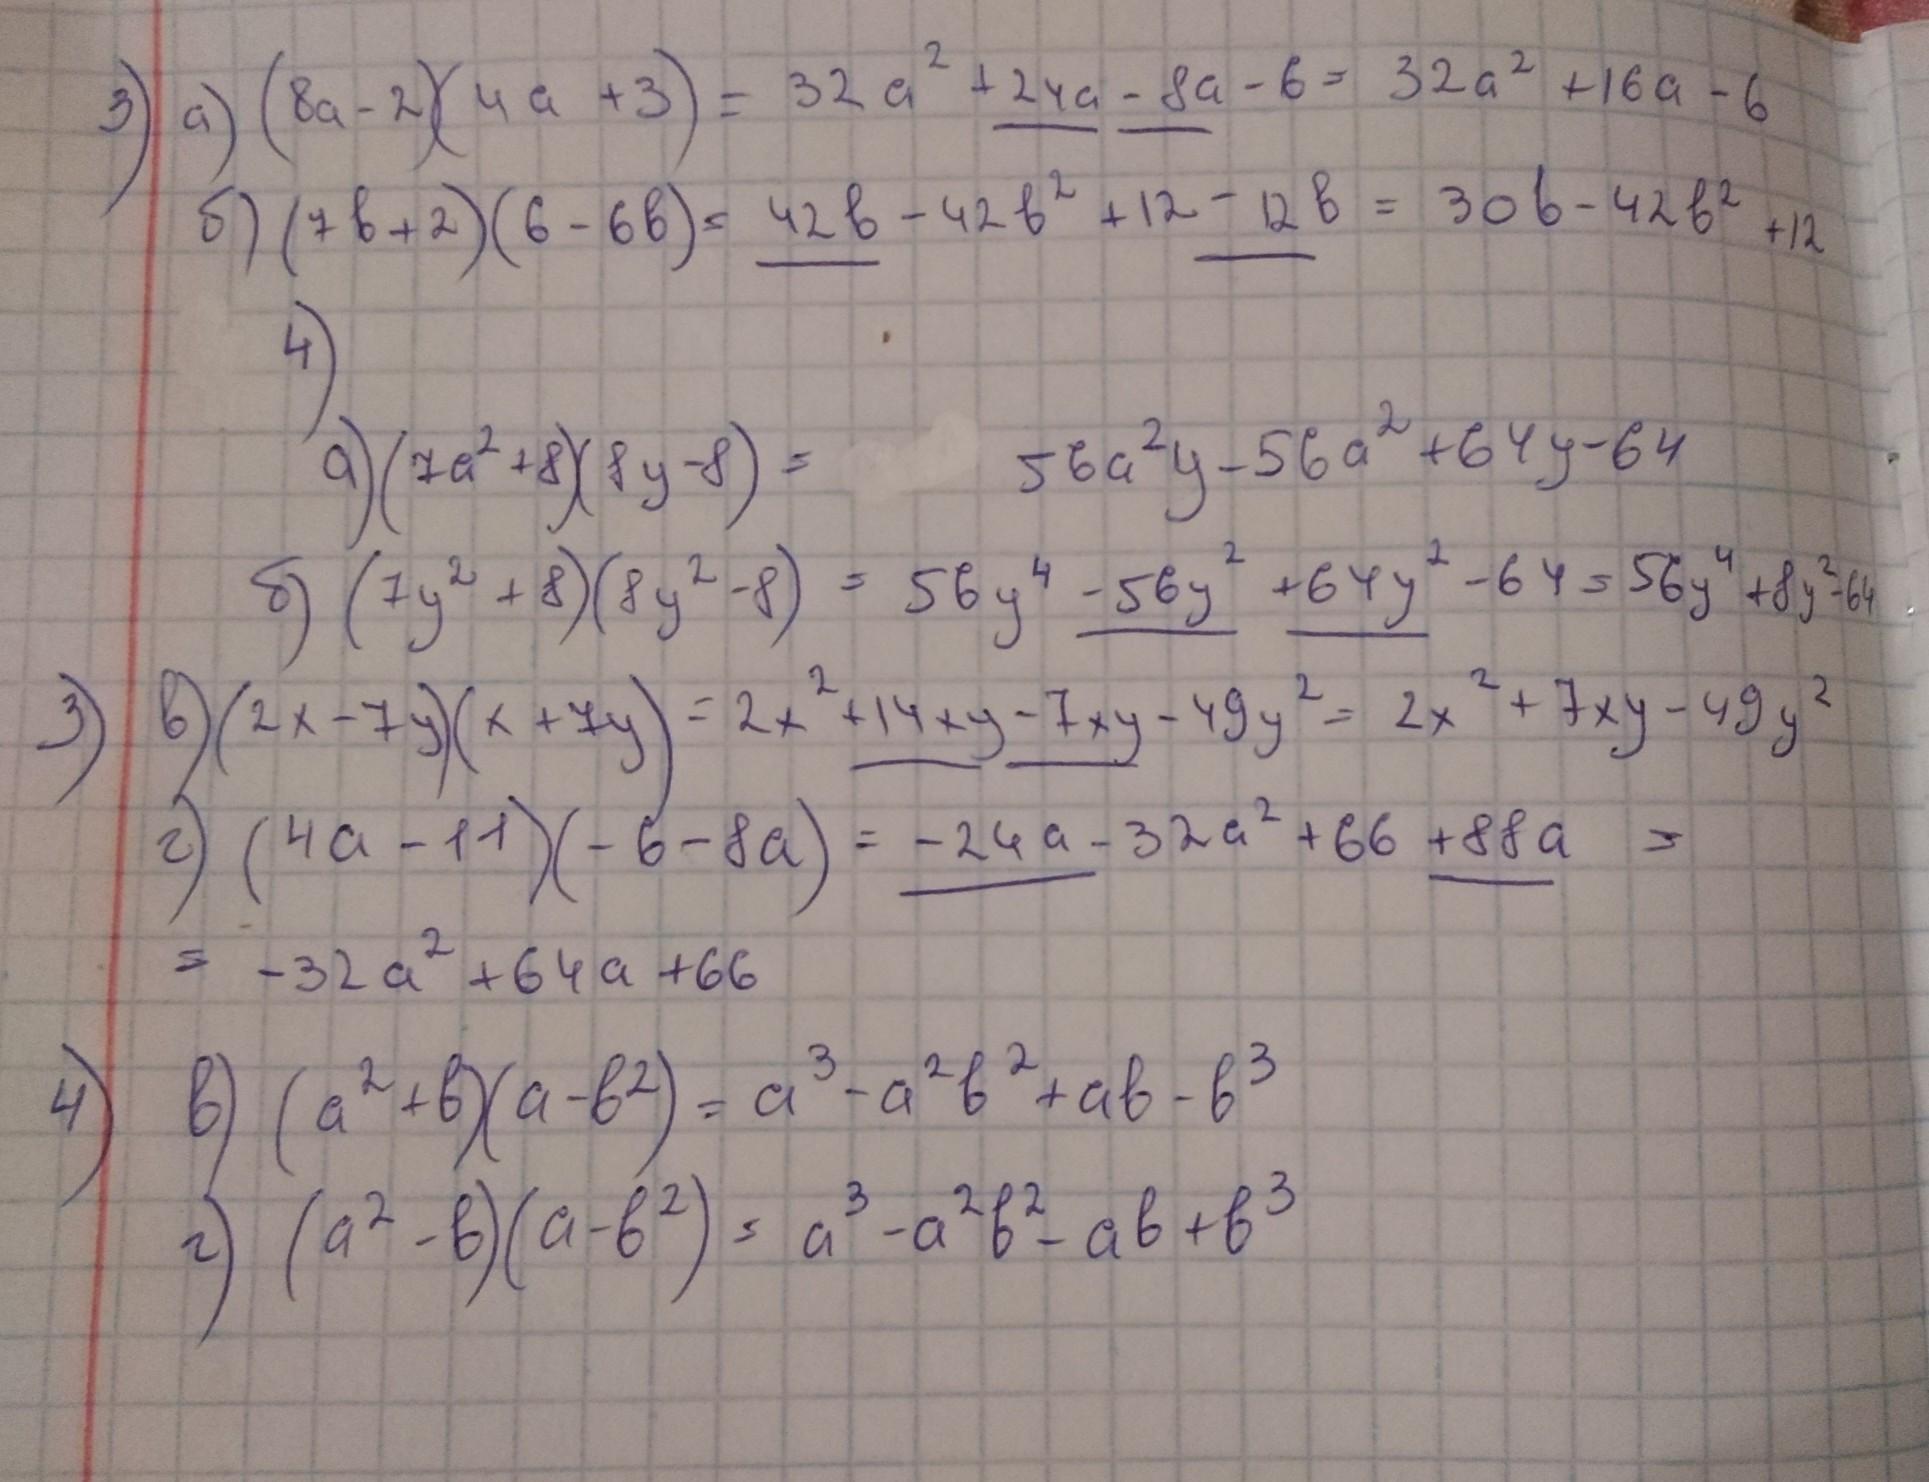 3) а) (8a-2)(4a+3) = 32a² +24a - 8a - 6 = 32a² +16a - 6
б) (7b+2)(6-6b) = 42b - 42b² +12 - 12b = 30b - 42b² +12
4)
а) (7a²+8)(8y-8) = 56a²y - 56a² + 64y - 64
б) (7y²+8)(8y²-8) = 56y⁴ - 56y² + 64y² - 64 = 56y⁴ + 8y² - 64
3) в) (2x-7y)(x+7y) = 2x² +14xy - 7xy - 49y² = 2x² + 7xy - 49y²
г) (4a-11)(-6-8a) = -24a - 32a² + 66 + 88a =
= -32a² + 64a + 66
4) в) (a²+b)(a-b²) = a³ - a²b² + ab - b³
г) (a²-b)(a-b²) = a³ - a²b² - ab + b³